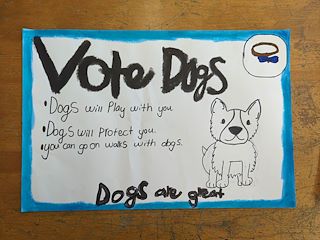 Vote Dogs
•Dogs will Play with you
•Dogs will Protect you.
•you can go on walks with dogs.
Dogs are great